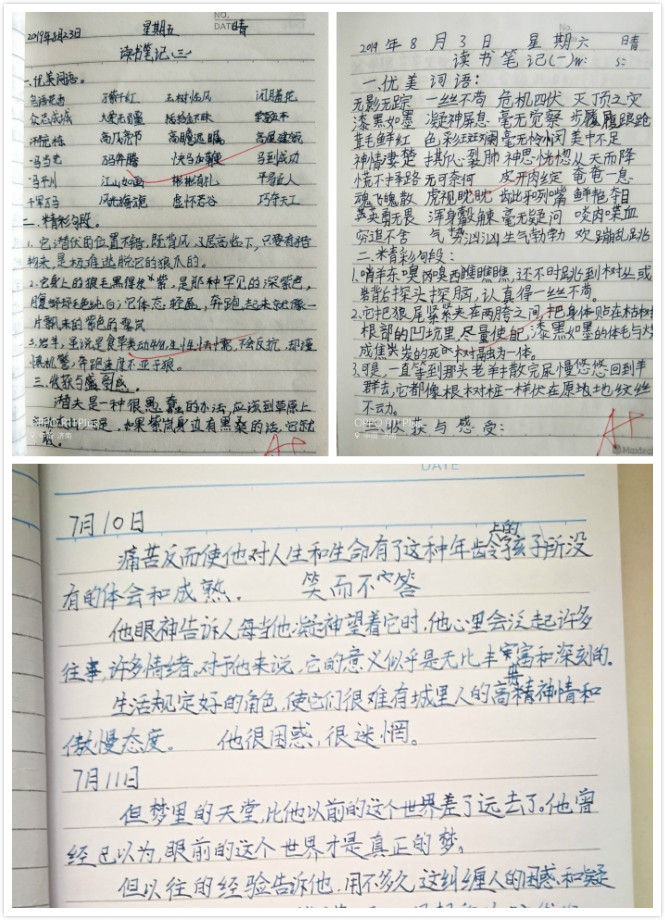 NO.
DATE
2019年8月23日 星期五 晴
读书笔记(三)
一.优美词语。
鸟语花香 万紫千红 玉树临风 闭月羞花
众志成城
高风亮节 高瞻远瞩 高屋建瓴
一马当先 万马奔腾 快马加鞭 马到成功
一马平川 江山如画 彬彬有礼 平易近人
千军万马 风光旖旎 虚怀若谷 巧夺天工
二.精彩句段。
1.它潜伏的位置不错,既背风,又居高临下,只要
狗夹,是极难逃脱它的狼爪的。
2.它身上的狼毛黑得发紫,是那种罕见的深紫色,
腹部却毛色纯白;它体态轻盈,奔跑起来就像一
片飘来的紫色的
3.岩羊,虽说是食草类动物,生性怯懦,不会反抗,却
机警,奔跑速度不亚于狼。
三.收获与感受。
潜夫是一种很愚蠢的办法,应该到草原上
如果紫岚身边有黑桑的话,它就
A+
2019年8月3日 星期六 晴
读书笔记(一)
一.优美词语:
无影无踪 一丝不苟 危机四伏 灭顶之灾
漆黑如墨 凝神屏息 毫无察觉 步履踉跄
鲜红 色彩斑斓 毫无怜悯 美中不足
神情凄楚 撕心裂肺 神思恍惚 从天而降
慌不择路 无可奈何 皮开肉绽 奄奄一息
魂飞魄散 虎视眈眈 龇牙咧嘴 鲜艳夺目
英勇无畏 浑身觳觫 毫无疑问 啖肉喋血
穷追不舍 气势汹汹 生气勃勃 欢蹦乱跳
二.精彩句段:
1.哨羊东嗅嗅西瞧瞧,还不时跳到树丛或
岩背后探头探脑,认真得一丝不苟。
2.它把狼尾紧紧夹在两胯之间,把身体贴在枯树
根部的凹坑里,尽量使自己漆黑如墨的体毛与火
成焦炭的死树融为一体。
3.可是,一直等到那头老羊散完尿慢悠悠回到羊
群去,它都像根树桩一样伏在原地纹丝
不动。
三.收获与感受:
A+
DATE
7月10日
痛苦反而使他对人生和生命有了这种年龄上的孩子所没
有的体会和成熟。 笑而不答
他眼神告诉人每当他凝神望着它时,他心里会泛起许多
往事,许多情绪。对于他来说,它的意义似乎是无比丰富和深刻的。
生活规定好的角色,使它们很难有城里人的高贵精神情和
傲慢态度。 他很困惑,很迷惘。
7月11日
但梦里的天堂,比他以前的这个世界差了远去了。他曾
经已以为,眼前的这个世界才是真正的梦。
但以往的经验告诉他,用不多久,这纠缠人的困惑和疑